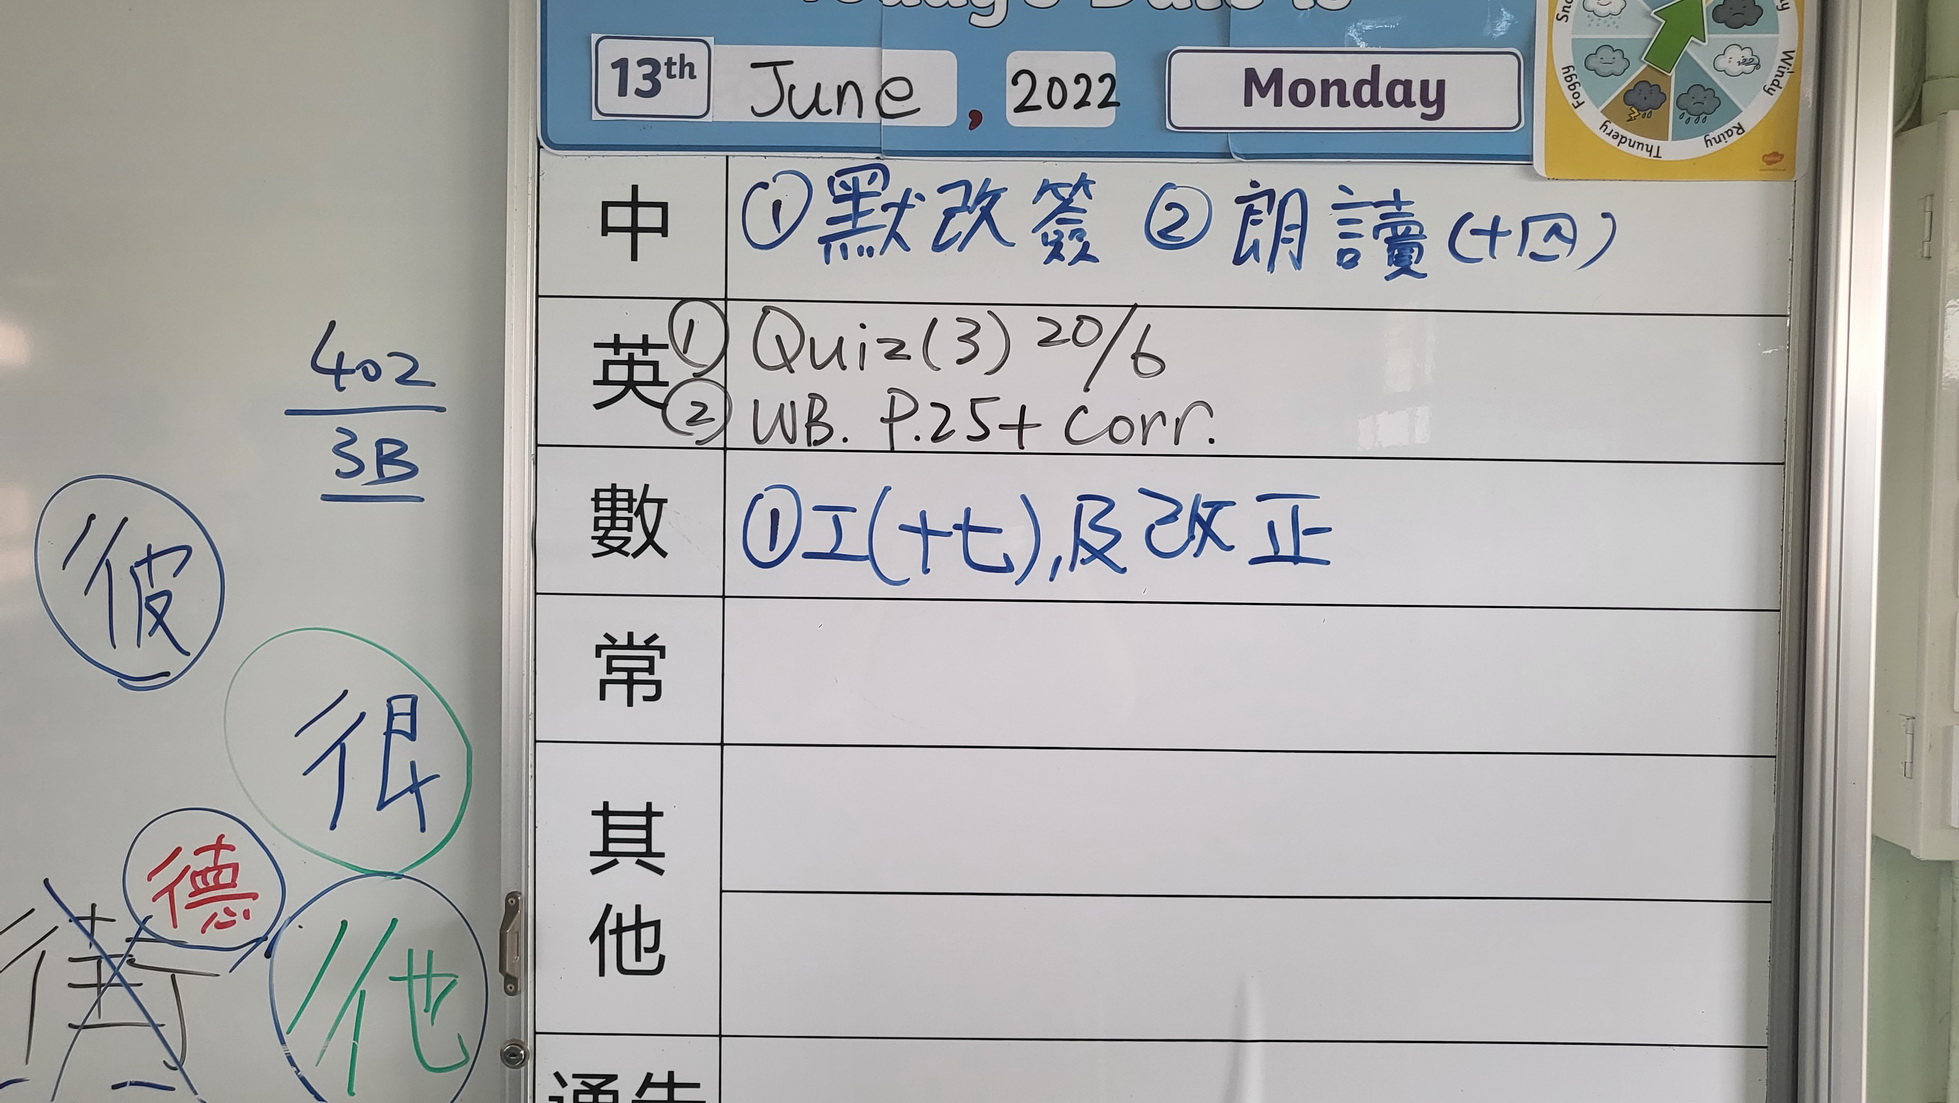 Today's Date is
13th June, 2022 Monday
中 ①默改簽 ②朗讀(十四)
英 ① Quiz(3) 20/6
② WB. P.25+ Corr.
數 ①工(十七),及改正
常
其他
通告
402
3B
彼
很
德
Foggy
Thundery
Rainy
Windy